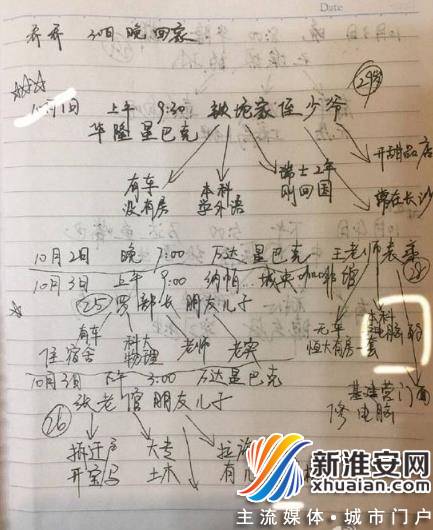 Date
乔乔 30日晚回家
10月1日 上午 9:30 姨沱家侄少爷
29岁
华隆星巴克
有车
没有房
本科
学外语
瑞士2年
刚回国
常在长沙
开甜品店
10月2日 晚 7:00 万达星巴克 王老师老弟
10月3日 上午 9:00 纳帕 城央咖啡馆
28
25 罗部长 朋友儿子
有车
住宿舍
科大
物理
老师
老实
无车
恒大有房一套
本科
基建营门面
修电脑
10月3日 下午 3:00 万达星巴克
26
张老官朋友儿子
拆迁户
开宝马
大专
土木
新淮安网
xhuaian.com
主流媒体·城市门户